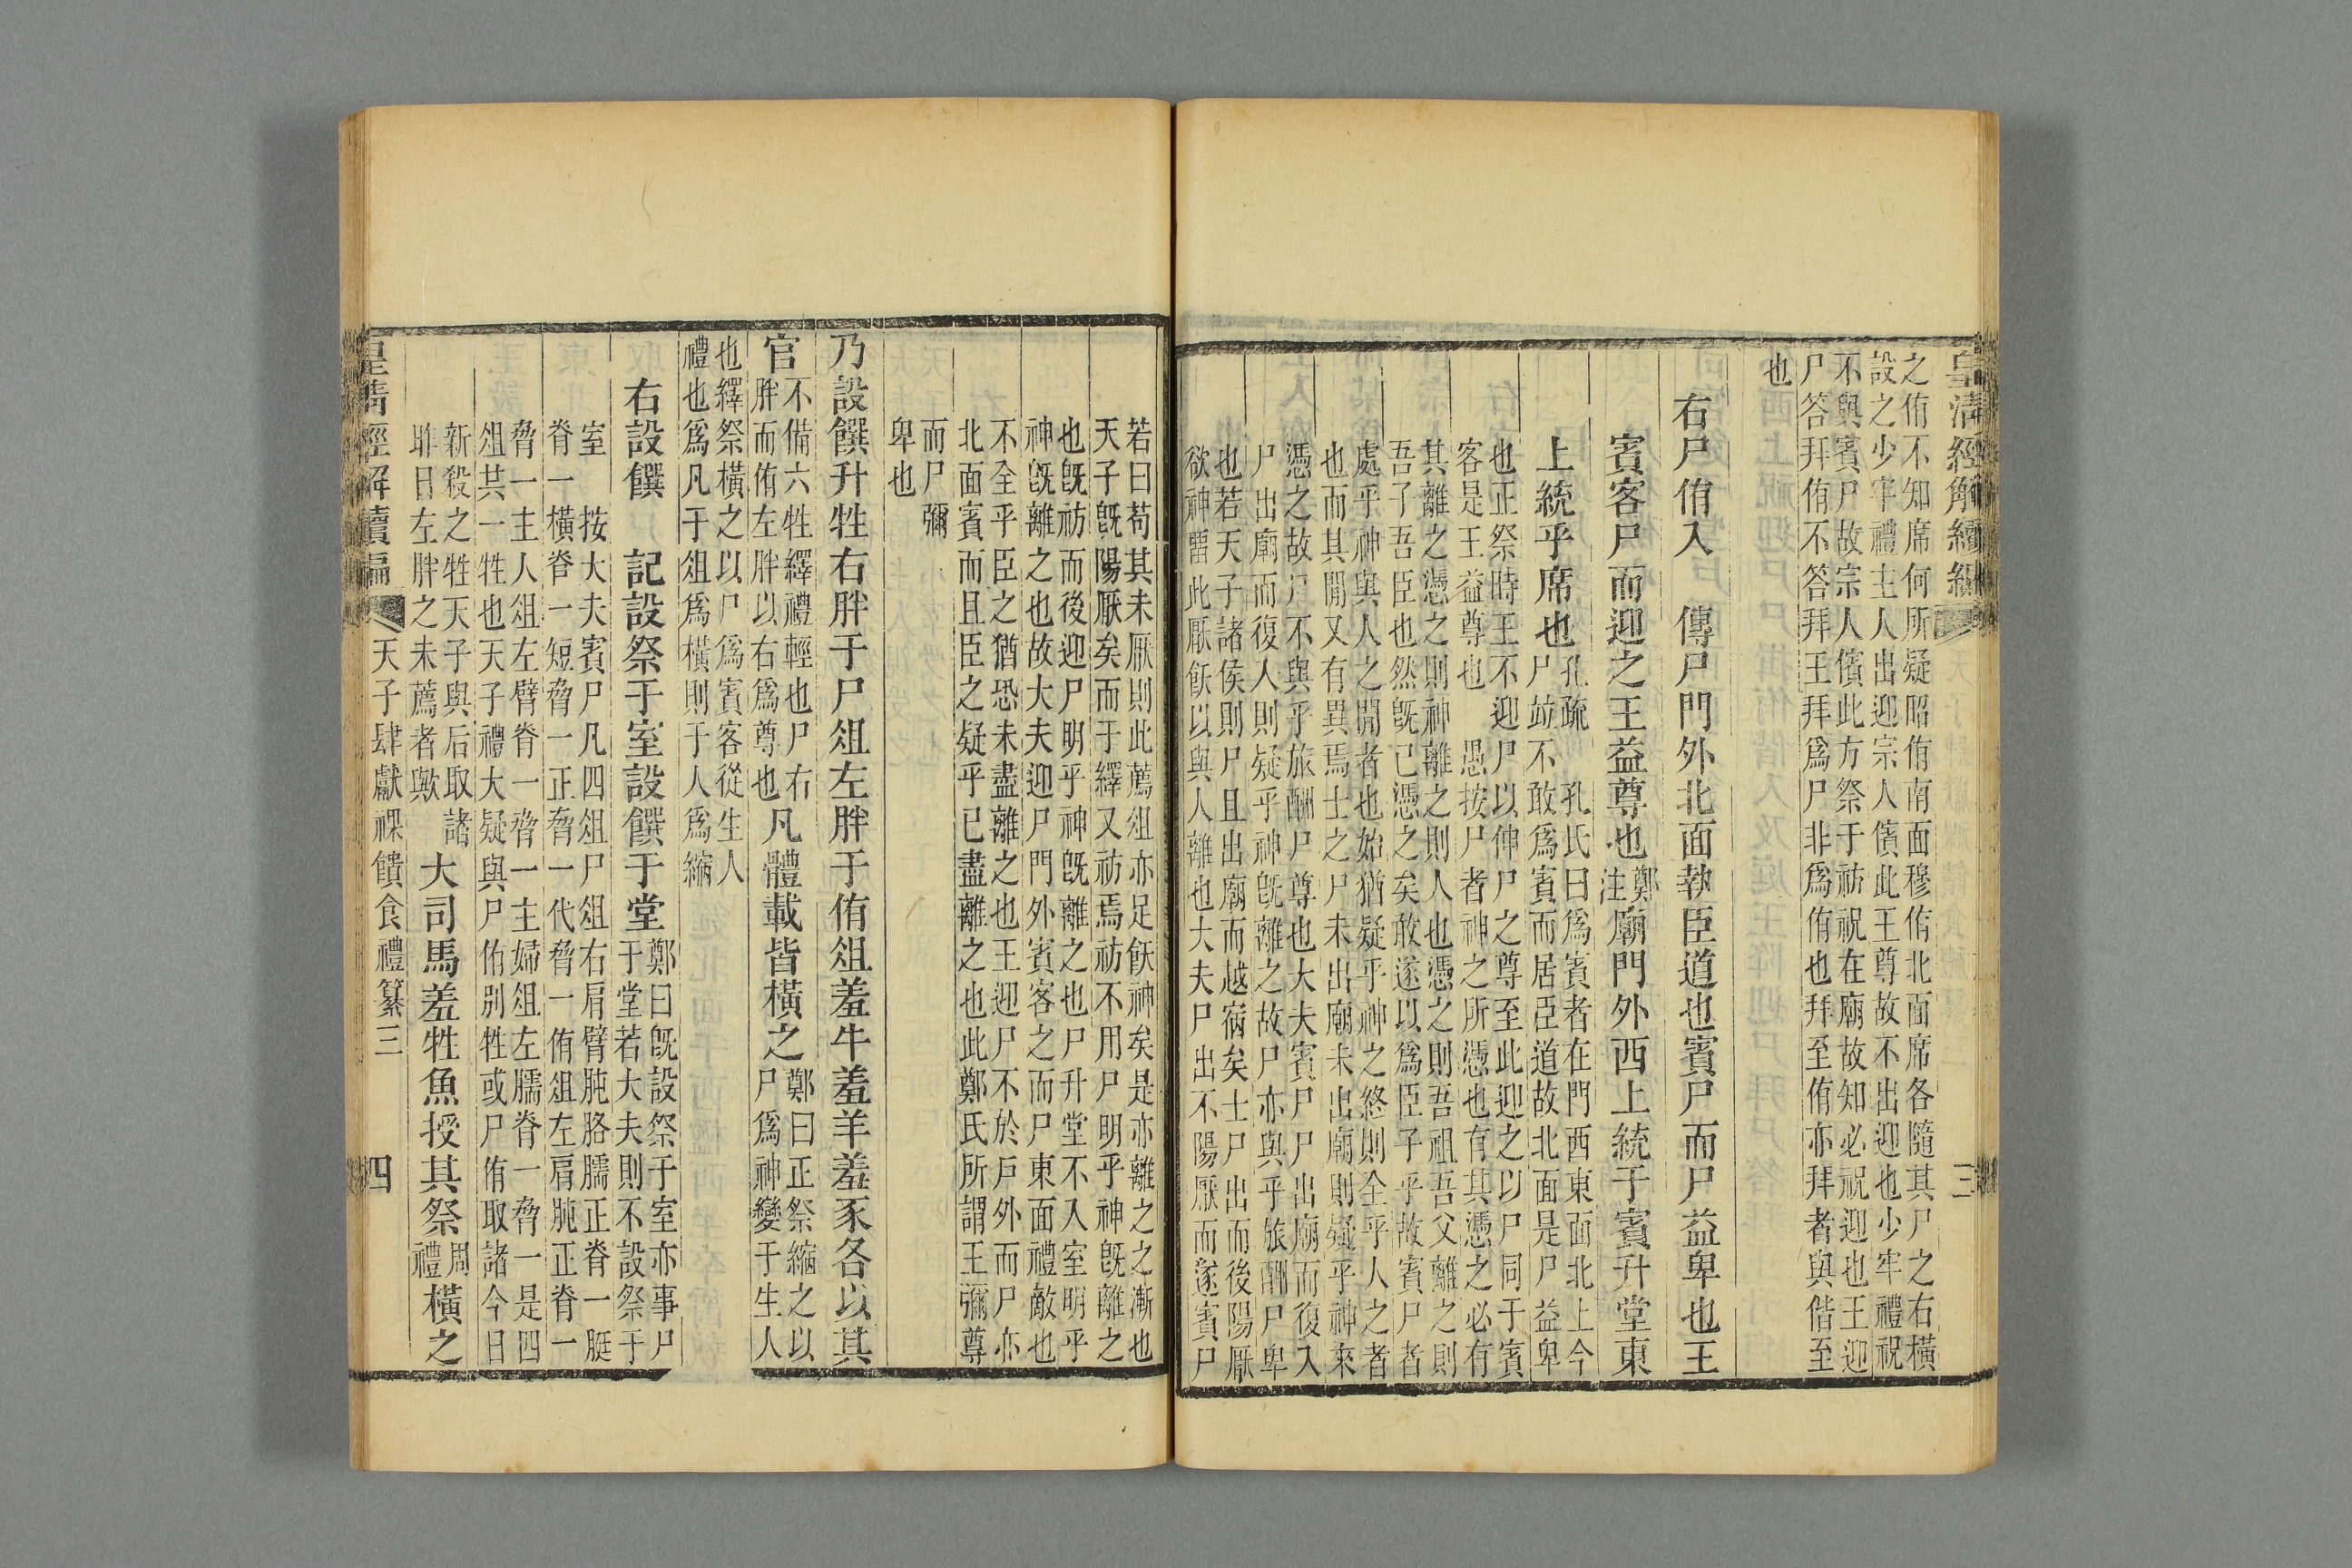 皇清經解續編
三
之侑不知席何所疑昭侑南面穆侑北面席各隨其尸之右橫
設之少牢禮主人出迎宗人儐此王尊故不出迎也少牢禮祝
不與賓尸故宗人儐此方祭于祊祝在廟故知必祝迎也王迎
尸答拜侑不答拜王拜爲尸非爲侑也拜至侑亦拜者與偕至
也
右尸侑入　傳尸門外北面執臣道也賓尸而尸益卑也王
賓客尸而迎之王益尊也鄭注廟門外西上統于賓升堂東
上統乎席也
孔疏　孔氏曰爲賓者在門西東面北上今
尸竝不敢爲賓而居臣道故北面是尸益卑
也正祭時王不迎尸以伸尸之尊至此迎之以尸同于賓
客是王益尊也　愚按尸者神之所憑也有其憑之必有
其離之憑之則神離之則人也憑之則吾祖吾父離之則
吾子吾臣也然旣已憑之矣敢遂以爲臣子乎故賓尸者
處乎神與人之閒者也始猶疑乎神之終則全乎人之者
也而其閒又有異焉士之尸未出廟未出廟則疑乎神來
憑之故尸不與乎旅酬尸尊也大夫賓尸尸出廟而復入
尸出廟而復人則疑乎神旣離之故尸亦與乎旅酬尸卑
也若天子諸侯則尸且出廟而越宿矣士尸出而後陽厭
欲神畱此厭飫以與人離也大夫尸出不陽厭而遂賓尸
若曰苟其未厭則此薦俎亦足飫神矣是亦離之之漸也
天子旣陽厭矣而于繹又祊焉祊不用尸明乎神旣離之
也旣祊而後迎尸明乎神旣離之也尸升堂不入室明乎
神旣離之也故大夫迎尸門外賓客之而尸東面禮敵也
不全乎臣之猶恐未盡離之也王迎尸不於戶外而尸亦
北面賓而且臣之疑乎已盡離之也此鄭氏所謂王彌尊
而尸彌
卑也
乃設饌升牲右胖于尸俎左胖于侑俎羞牛羞羊羞豕各以其
官
不備六牲繹禮輕也尸右
胖而侑左胖以右爲尊也
凡體載皆橫之
鄭曰正祭縮之以
尸爲神變于生人
也繹祭橫之以尸爲賓客從生人
禮也爲凡于俎爲橫則于人爲縮
右設饌　記設祭于室設饌于堂
鄭曰旣設祭于室亦事尸
于堂若大夫則不設祭于
室　按大夫賓尸凡四俎尸俎右肩臂肫胳臑正脊一脡
脊一橫脊一短脅一正脅一代脅一侑俎左肩肫正脊一
脅一主人俎左臂脊一脅一主婦俎左臑脊一脅一是四
俎其一牲也天子禮大疑與尸侑別牲或尸侑取諸今日
新殺之牲天子與后取諸
昨日左胖之未薦者歟
大司馬羞牲魚授其祭
周
禮
橫之
皇清經解續編
天子肆獻祼饋食禮纂三
四